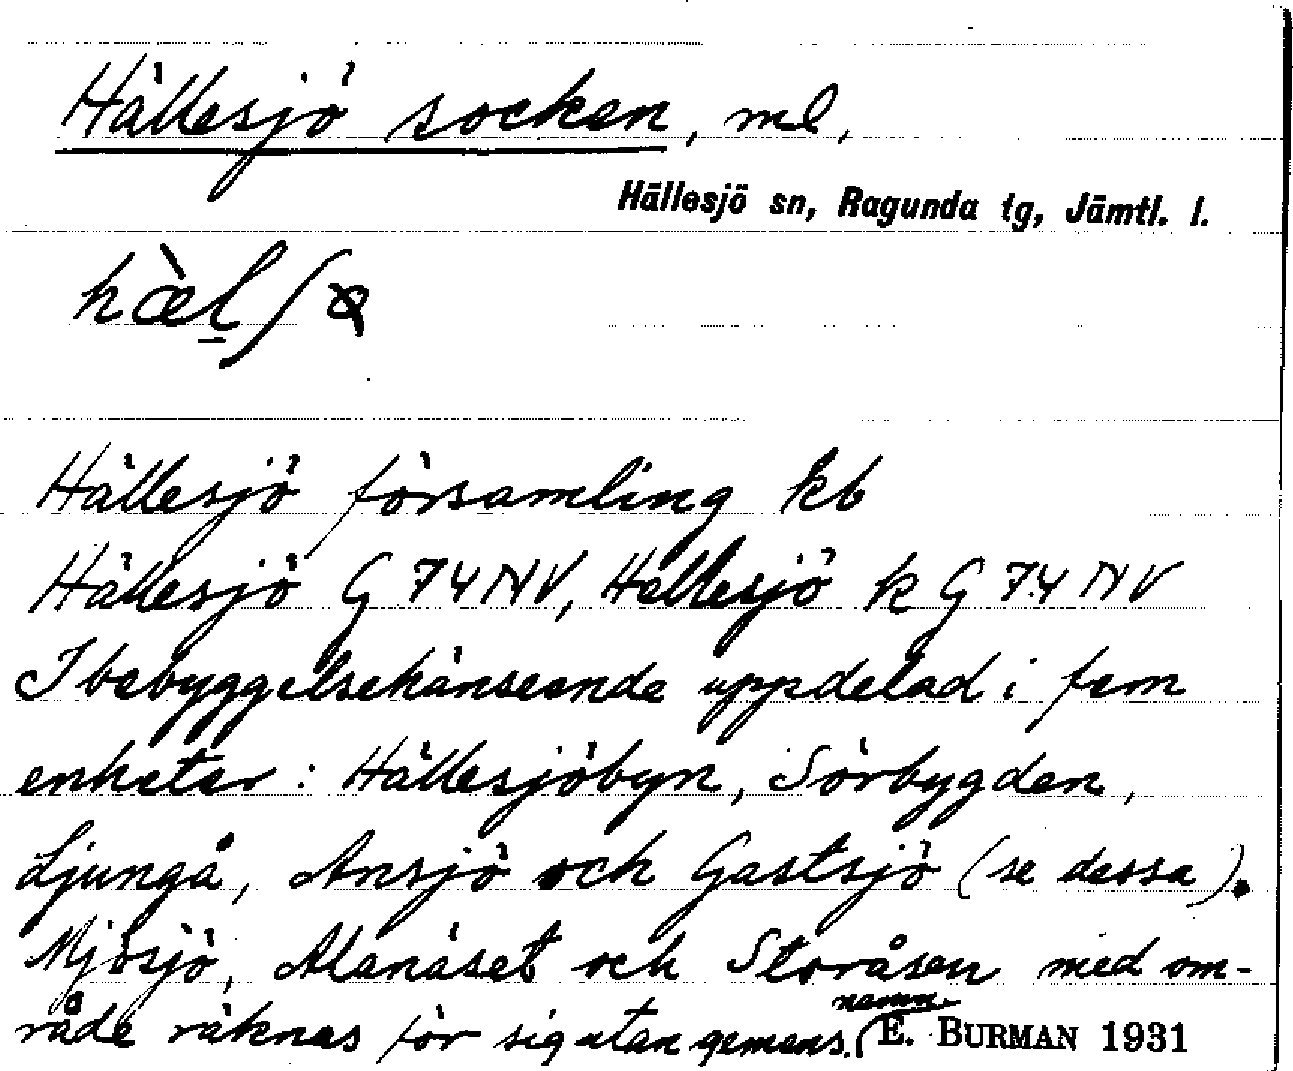 Hällesjö socken, ml,
Hällesjö sn, Ragunda tg, Jämtl. l.
Hällesjö församling kb
Hällesjö G 74 NV, Hällesjö k G 74 NV
I bebyggelsehänseende uppdelad i fem
enheter: Hällesjöbyn, Sörbygden,
Ljungå, Ansjö och Gastsjö (se dessa).
Mjösjö, Alanäset och Storåsen med om-
råde räknas för sig utan gemens. namn
E. BURMAN 1931